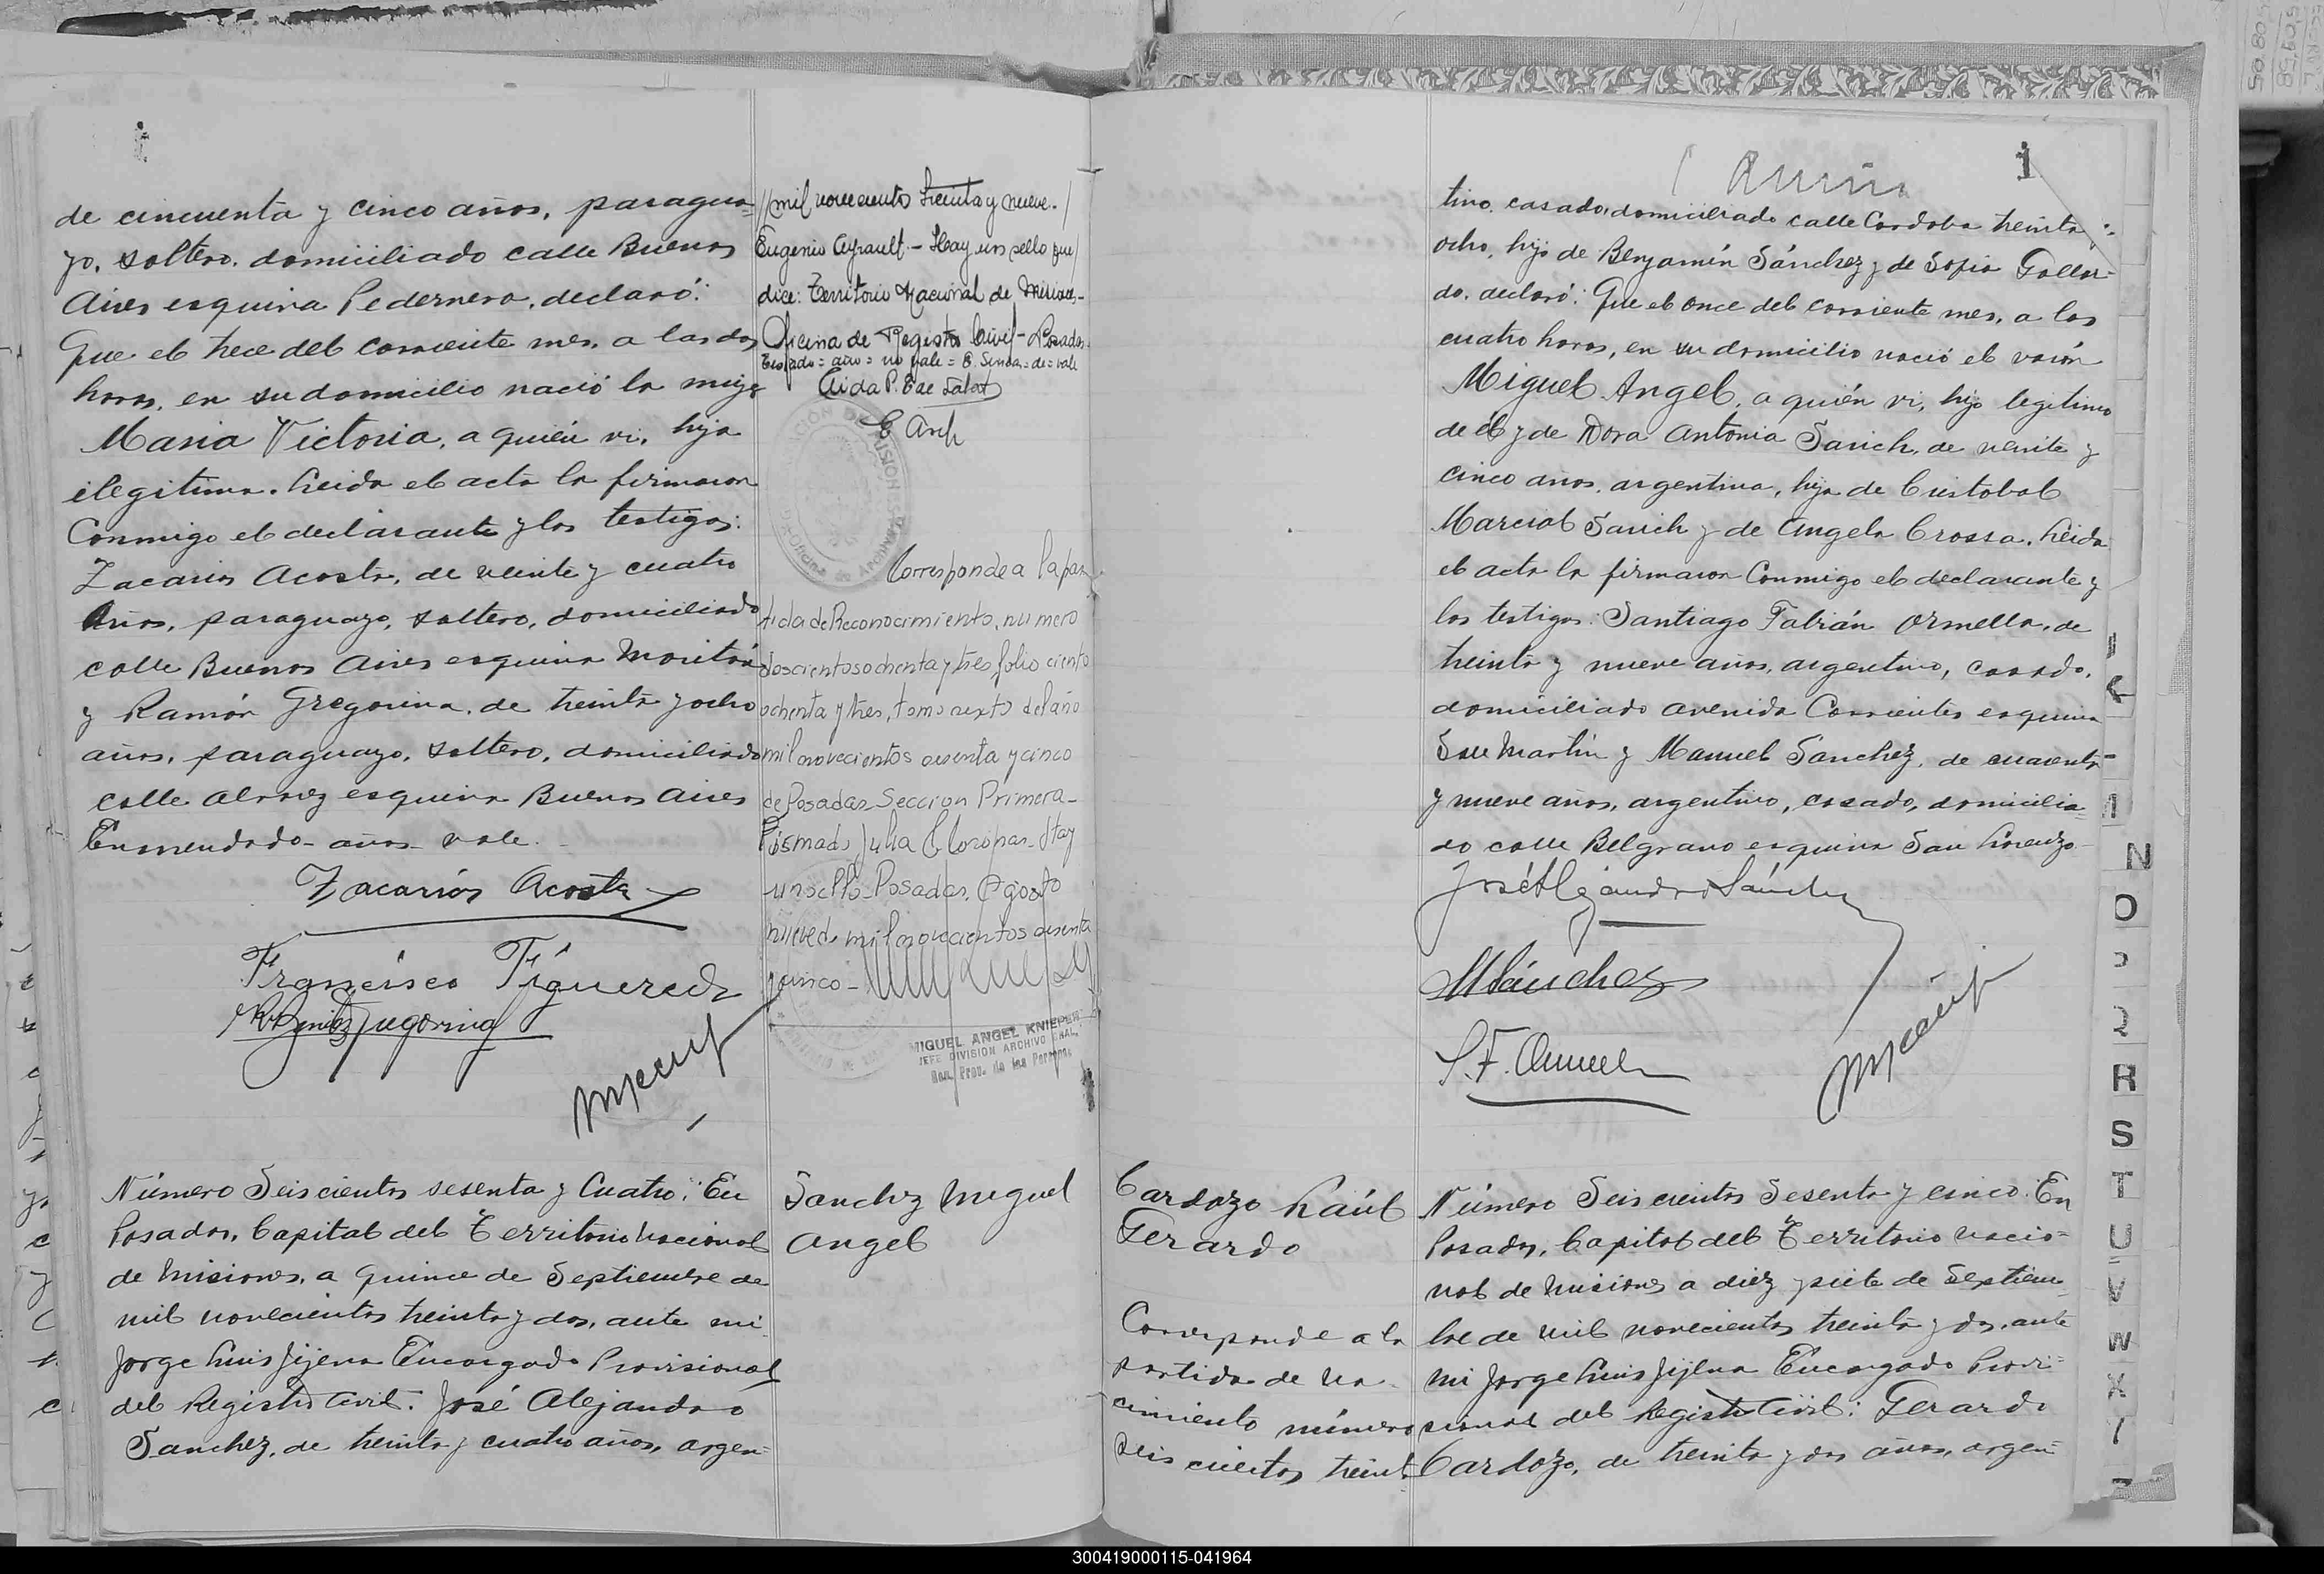 de cincuenta y cinco años, paragua=
yo, soltero, domiciliado calle Buenos
Aires esquina Pedernera, declaró:
Que el trece del corriente mes, a las dos
horas, en su domicilio nació la mujer
Maria Victoria, a quién vi, hija
ilegitima. Leida el acta la firmaron
Conmigo el declarante y los testigos:
Zacarias Acosta, de veinte y cuatro
años, paraguayo, soltero, domiciliado
calle Buenos Aires esquina
y Ramón Gregorina, de treinta y ocho
años, paraguayo, soltero, domiciliado
calle Alvarez esquina Buenos Aires
Enmendado - años - vale.
Zacarias Acosta
Francisco Figueredo
Número Seiscientos sesenta y Cuatro: En
Posadas, Capital del Territorio Nacional
de Misiones, a quince de Septiembre de
mil novecientos treinta y dos, ante mi
Jorge Luis Jijena Encargado Provisional
del Registro Civil: José Alejandro
Sanchez, de treinta y cuatro años, argen=
//mil novecientos treinta y nueve.-/
Eugenio Ayrault.- Hay un sello que/
dice: Territorio Nacional de Misiones-
Oficina de Registro Civil - Posadas.
Corresponde a la par
tida de Reconocimiento, numero
doscientos ochenta y tres, folio ciento
ochenta y tres, tomo sexto del año
mil novecientos sesenta y cinco
de Posadas Seccion Primera-
Firmado Julia Hay
un sello Posadas, Agosto
nueve de mil novecientos sesenta
y cinco-
MIGUEL ANGEL KNIEPER
JEFE DIVISION ARCHIVO GRAL.
Reg. Prov. de las Personas
Sanchez Miguel
Angel
1
tino, casado, domiciliado calle Cordoba treinta y
ocho, hijo de Benjamín Sánchez y de Sofia Gallar=
do, declaró: Que el once del corriente mes, a las
cuatro horas, en su domicilio nació el varón
Miguel Angel, a quién vi, hijo legitimo
de él y de Dora Antonia Sanich, de veinte y
cinco años, argentina, hija de Cristobal
Marcial Sanich y de Angela Crossa. Leida
el acta la firmaron Conmigo el declarante y
los testigos: Santiago Fabián Ormella, de
treinta y nueve años, argentino, casado,
domiciliado avenida Corrientes esquina
San Martin y Manuel Sanchez, de cuarenta
y nueve años, argentino, casado, domicilia=
do calle Belgrano esquina San Lorenzo
José Alejandro Sánchez
MSánchez
Cardozo Raúl
Gerardo
Corresponde a la
partida de na-
cimiento número
seiscientos treint
Número Seiscientos Sesenta y cinco: En
Posadas, Capital del Territorio Nacio=
nal de Misiones a diez y siete de Septiem
bre de mil novecientos treinta y dos, ante
mi Jorge Luis Jijena Encargado Provi=
sional del Registro Civil: Gerardo
Cardozo, de treinta y dos años, argen=
N
O
R
S
T
U
V
W
X
300419000115-041964